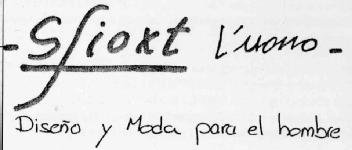 - Sfiokt L'uomo -
Diseño y Moda para el hombre